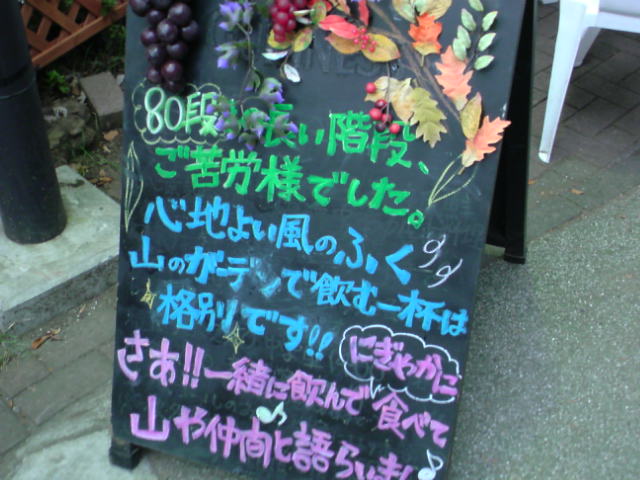 80段 長い階段、
ご苦労様でした。
心地よい風のふく
山のガーデンで飲む一杯は
格別です!!
にぎやかに
さあ!!一緒に飲んで食べて
山や仲間と語らいま